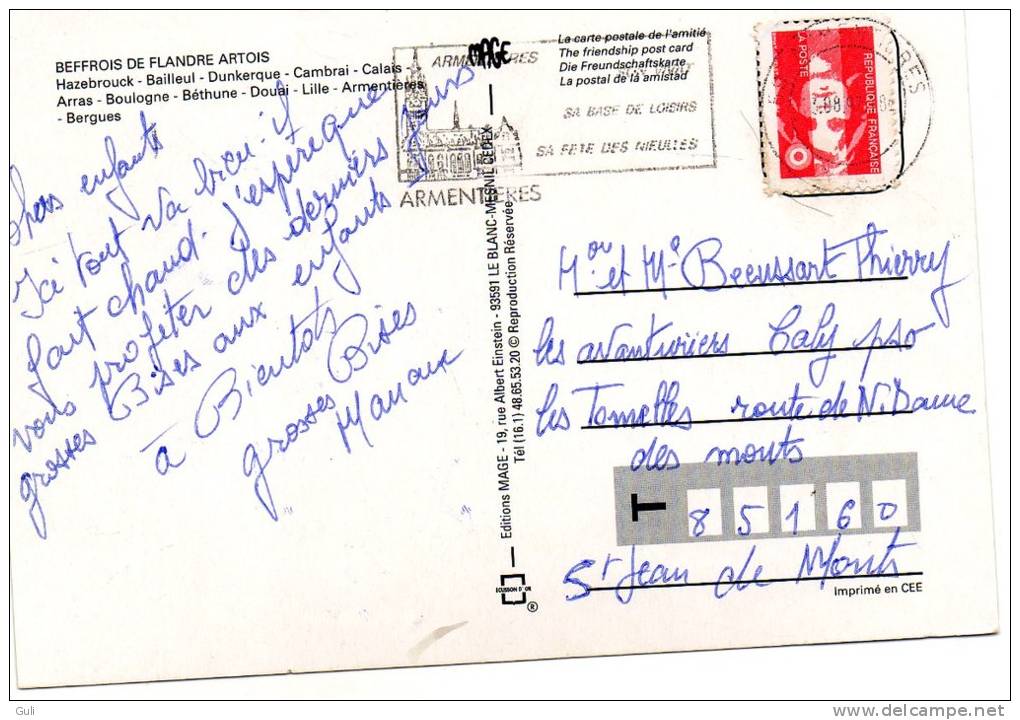 BEFFROIS DE FLANDRE ARTOIS
Hazebrouck - Bailleul - Dunkerque - Cambrai - Calais
Arras - Boulogne - Béthune - Douai - Lille - Armentières
- Bergues
Chers enfants
Ici tout va bien. il
fait chaud. J'espère que
vous profiter des derniers jours
grosses Bises aux enfants
à Bientôt
grosses Bises
ARMENTIERES
MAGE
SA BASE DE LOISIRS
SA FETE DES NIEULLES
ARMENTIERES
La carte postale de l'amitié
The friendship post card
Die Freundschaftskarte
La postal de la amistad
REPUBLIQUE FRANÇAISE
LA POSTE
Editions MAGE - 19, rue Albert Einstein - 93591 LE BLANC-MESNIL CEDEX
Tél (16.1) 48.65.53.20 © Reproduction Réservée
ECUSSON D'OR
®
Mr et Me Beeussart Thierry
les avanturiers Caly
les Tomelles route de N. Dame
des monts
T
85160
St Jean de Monts
Imprimé en CEE
Guli